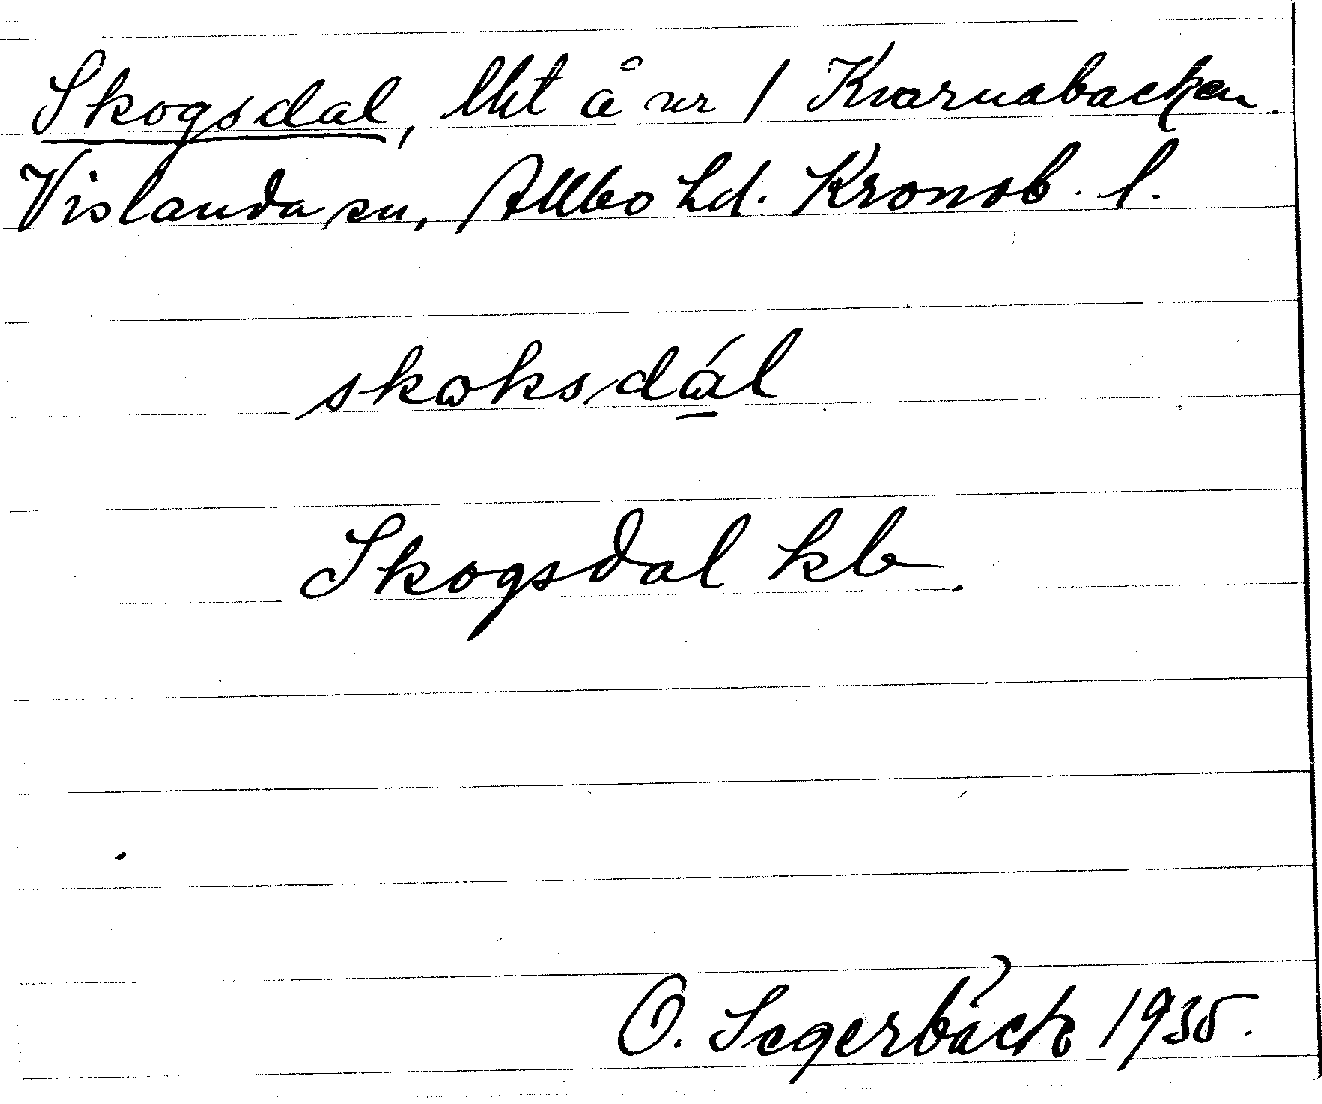 Skogsdal, lht å nr 1 Kvarnabacken.
Vislanda sn, Allbo hd. Kronob. l.
skoksdál
Skogsdal kb.
O. Segerbäck 1935.